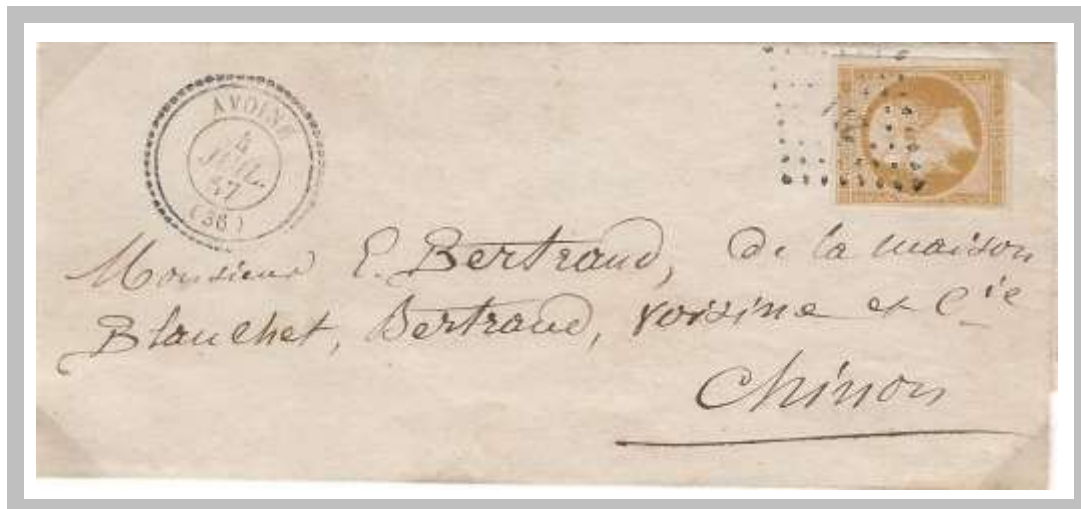 AVOINE
4
JUIL.
57
(36)
Monsieur E. Bertrand, de la maison
Blanchet, Bertrand, voisine et Cie
Chinon